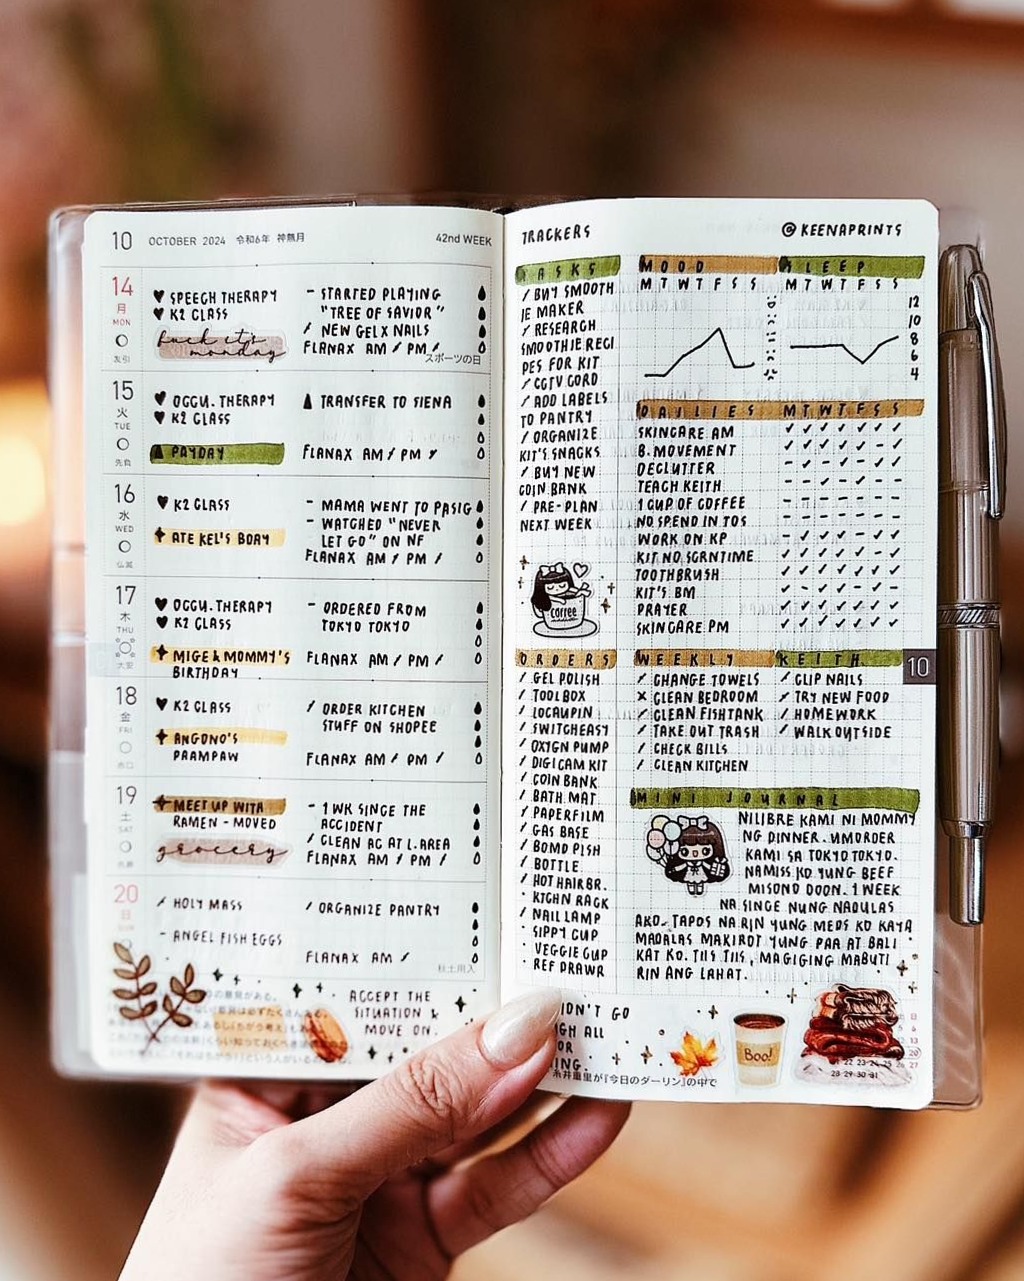 10 OCTOBER 2024 令和6年 神無月 42nd WEEK
14
月
MON
友引
♥ SPEECH THERAPY
♥ K2 CLASS
fuck it's
monday
- STARTED PLAYING
"TREE OF SAVIOR"
/ NEW GEL X NAILS
FLANAX AM / PM /
スポーツの日
15
火
TUE
先負
♥ OCCU. THERAPY
♥ K2 CLASS
PAYDAY
▲ TRANSFER TO SIENA
FLANAX AM / PM /
16
水
WED
仏滅
♥ K2 CLASS
ATE KEL'S BDAY
- MAMA WENT TO PASIG
- WATCHED "NEVER
LET GO" ON NF
FLANAX AM / PM /
17
木
THU
大安
♥ OCCU. THERAPY
♥ K2 CLASS
MIGE & MOMMY'S
BIRTHDAY
- ORDERED FROM
TOKYO TOKYO
FLANAX AM / PM /
18
金
FRI
赤口
♥ K2 CLASS
ANGONO'S
PAAMPAW
/ ORDER KITCHEN
STUFF ON SHOPEE
FLANAX AM / PM /
19
土
SAT
先勝
MEET UP WITH
RAMEN - MOVED
grocery
- 1 WK SINCE THE
ACCIDENT
/ CLEAN AC AT L.AREA
FLANAX AM / PM /
20
日
SUN
/ HOLY MASS
- ANGEL FISH EGGS
/ ORGANIZE PANTRY
FLANAX AM /
秋土用入
ACCEPT THE
SITUATION &
MOVE ON.
TRACKERS
@KEENAPRINTS
TASKS
/ BUY SMOOTH
IE MAKER
/ RESEARCH
SMOOTHIE RECI
PES FOR KIT
/ CCTV CORD
/ ADD LABELS
TO PANTRY
/ ORGANIZE
KIT'S SNACKS
/ BUY NEW
COIN BANK
/ PRE-PLAN
NEXT WEEK
coffee
MOOD
M T W T F S S
SLEEP
M T W T F S S
12
10
8
6
4
DAILIES M T W T F S S
SKINCARE AM
B. MOVEMENT
DECLUTTER
TEACH KEITH
1 CUP OF COFFEE
NO SPEND IN TOS
WORK ON KP
KIT NO SCRNTIME
TOOTHBRUSH
KIT'S BM
PRAYER
SKINCARE PM
10
ORDERS
/ GEL POLISH
/ TOOLBOX
/ LOCAUPIN
/ SWITCHEASY
/ OXYGN PUMP
/ DIGICAM KIT
/ COIN BANK
/ BATH MAT
/ PAPERFILM
/ GAS BASE
/ BOMD PISH
/ BOTTLE
/ HOT HAIR BR.
· KTCHN RACK
/ NAIL LAMP
· SIPPY CUP
· VEGGIE CUP
· REF DRAWR
WEEKLY
/ CHANGE TOWELS
x CLEAN BEDROOM
/ CLEAN FISHTANK
/ TAKE OUT TRASH
/ CHECK BILLS
/ CLEAN KITCHEN
KEITH
/ CLIP NAILS
/ TRY NEW FOOD
/ HOMEWORK
/ WALK OUTSIDE
MINI JOURNAL
NILIBRE KAMI NI MOMMY
NG DINNER. UMORDER
KAMI SA TOKYO TOKYO.
NAMISS KO YUNG BEEF
MISONO DOON. 1 WEEK
NA SINCE NUNG NADULAS
AKO. TAPOS NA RIN YUNG MEDS KO KAYA
MADALAS MAKIROT YUNG PAA AT BALI
KAT KO. TIIS TIIS, MAGIGING MABUTI
RIN ANG LAHAT.
IDN'T GO
GH ALL
OR
ING.
糸井重里が『今日のダーリン』の中で
Boo!
22 23 24 25 26 27
28 29 30 31